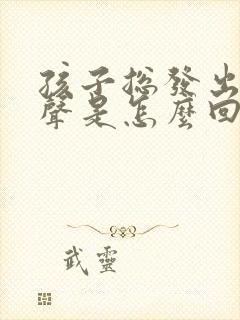 孩子總發出
聲是怎麼回
武靈